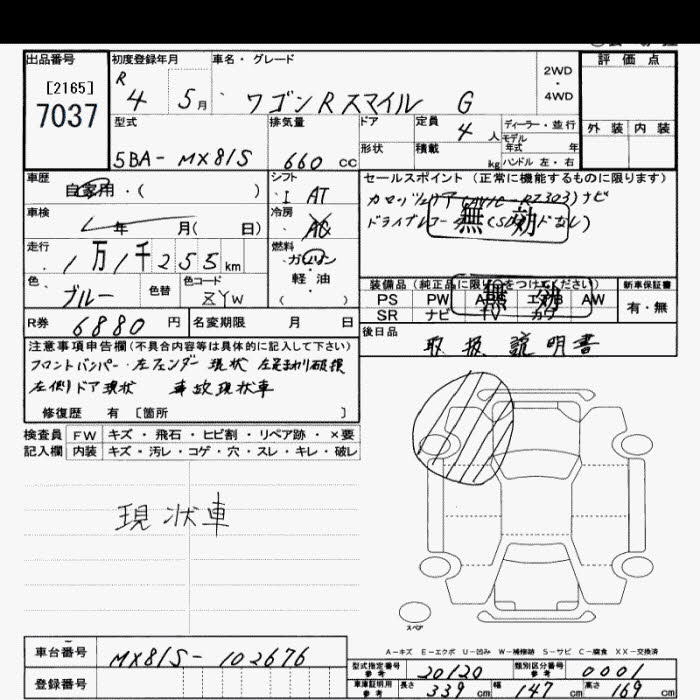 出品番号 初度登録年月 車名・グレード 2WD・4WD 評価点
[2165]
7037
R 4 5月 ワゴンRスマイル G
型式 排気量 ドア 定員 4人 ディーラー・並行
モデル年式 年
外装 内装
5BA-MX81S 660cc 形状 積載 kg ハンドル 左・右
車歴 シフト セールスポイント (正常に機能するものに限ります)
自家用・( ) I AT
ナビ
車検 冷房 ドライブレコーダー(SDカードなし)
年 月( 日) AC 無効
走行 燃料
1万1千255km ガソリン・軽油
( )
色 色替 色コード
ブルー ZYW
装備品 (純正品に限り○をつけてください) 新車保証書
PS PW ABS エアB AW 有・無
SR ナビ TV カワ
無効
R券 6880円 名変期限 月 日 後日品
取扱説明書
注意事項申告欄(不具合内容等は具体的に記入して下さい)
フロントバンパー 左フェンダー 現状 左足まわり破損
左側ドア現状 事故現状車
修復歴 有 〔箇所 〕
検査員 FW キズ・飛石・ヒビ割・リペア跡・×要
記入欄 内装 キズ・汚レ・コゲ・穴・スレ・キレ・破レ
現状車
スペア
A-キズ E-エクボ U-凹み W-補修跡 S-サビ C-腐食 XX-交換済
車台番号 MX81S-102676
登録番号
型式指定番号 参考 20120 類別区分番号 参考 0001
車庫証明用 参考 長さ 339cm 幅 147cm 高さ 169cm